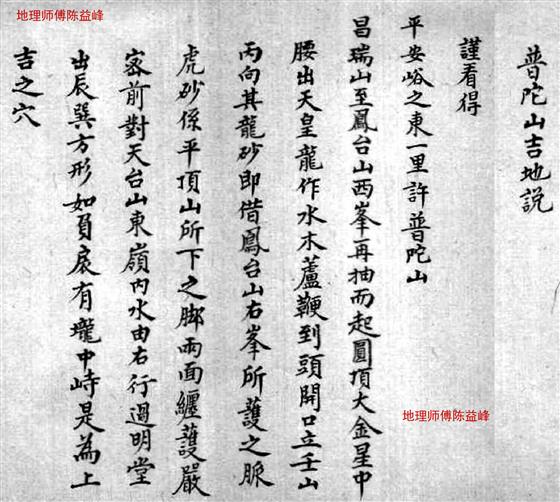 地理师傅陈益峰
普陀山吉地説
謹看得
平安峪之東一里許普陀山
昌瑞山至鳳台山西峯再抽而起圓頂大金星中
腰出天皇龍作水木蘆鞭到頭開口立壬山
丙向其龍砂即借鳳台山右峯所護之脈
虎砂係平頂山所下之脚兩面纏護嚴
宻前對天台山東嶺內水由右行過明堂
出辰巽方形如負扆有壠中峙是為上
吉之穴
地理师傅陈益峰